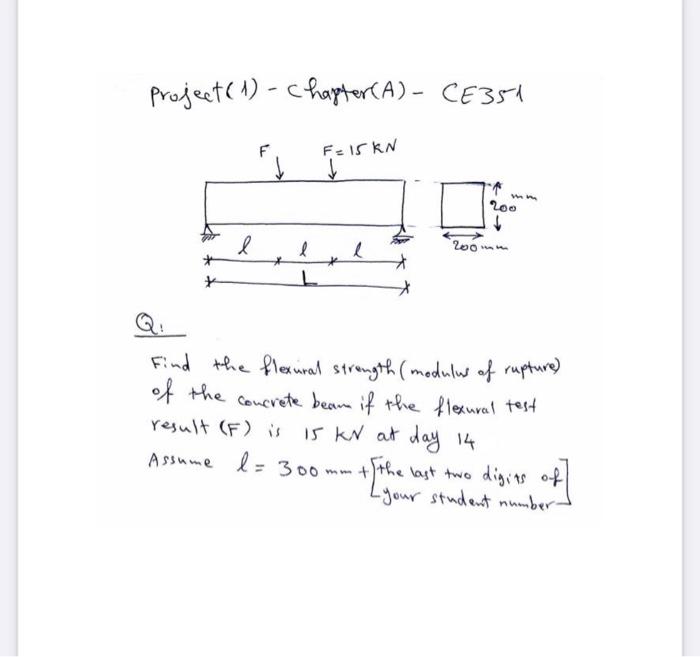 Project(1) - Chapter(A) - CE351
F F=15 KN
200 mm
200 mm
l l l
L
Q:
Find the flexural strength (modulus of rupture)
of the concrete beam if the flexural test
result (F) is 15 kN at day 14
Assume l = 300 mm + [the last two digits of
your student number]